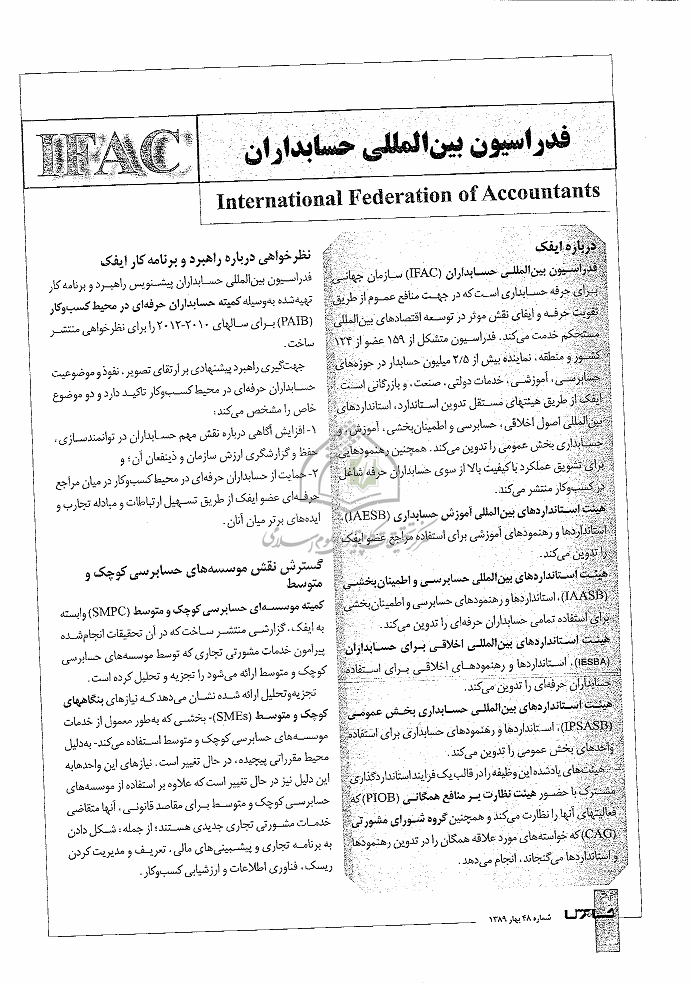 فدراسیون بین‌المللی حسابداران
IFAC
International Federation of Accountants
درباره ایفک
فدراسیون بین‌المللی حسابداران (IFAC) سازمان جهانی
برای حرفه حسابداری است که در جهت منافع عموم از طریق
تقویت حرفه و ایفای نقش موثر در توسعه اقتصادهای بین‌المللی
مستحکم خدمت می‌کند. فدراسیون متشکل از ۱۵۹ عضو از ۱۲۴
کشور و منطقه، نماینده بیش از ۲/۵ میلیون حسابدار در حوزه‌های
حسابرسی، آموزشی، خدمات دولتی، صنعت، و بازرگانی است.
ایفک از طریق هیئتهای مستقل تدوین استاندارد، استانداردهای
بین‌المللی اصول اخلاقی، حسابرسی و اطمینان‌بخشی، آموزش، و
حسابداری بخش عمومی را تدوین می‌کند. همچنین رهنمودهایی
برای تشویق عملکرد با کیفیت بالا از سوی حسابداران حرفه شاغل
در کسب‌وکار منتشر می‌کند.
هیئت استانداردهای بین‌المللی آموزش حسابداری (IAESB)،
استانداردها و رهنمودهای آموزشی برای استفاده مراجع عضو ایفک
را تدوین می‌کند.
هیئت استانداردهای بین‌المللی حسابرسی و اطمینان‌بخشی
(IAASB)، استانداردها و رهنمودهای حسابرسی و اطمینان‌بخشی
برای استفاده تمامی حسابداران حرفه‌ای را تدوین می‌کند.
هیئت استانداردهای بین‌المللی اخلاقی برای حسابداران
(IESBA)، استانداردها و رهنمودهای اخلاقی برای استفاده
حسابداران حرفه‌ای را تدوین می‌کند.
هیئت استانداردهای بین‌المللی حسابداری بخش عمومی
(IPSASB)، استانداردها و رهنمودهای حسابداری برای استفاده
واحدهای بخش عمومی را تدوین می‌کند.
هیئت‌های یادشده این وظیفه را در قالب یک فرایند استانداردگذاری
مشترک با حضور هیئت نظارت بر منافع همگانی (PIOB) که
فعالیتهای آنها را نظارت می‌کند و همچنین گروه شورای مشورتی
(CAG) که خواسته‌های مورد علاقه همگان را در تدوین رهنمودها
و استانداردها می‌گنجاند، انجام می‌دهد.
نظرخواهی درباره راهبرد و برنامه کار ایفک
فدراسیون بین‌المللی حسابداران پیشنویس راهبرد و برنامه کار
تهیه‌شده به‌وسیله کمیته حسابداران حرفه‌ای در محیط کسب‌وکار
(PAIB) برای سالهای ۲۰۱۰-۲۰۱۲ را برای نظرخواهی منتشر
ساخت.
جهت‌گیری راهبرد پیشنهادی بر ارتقای تصویر، نفوذ و موضوعیت
حسابداران حرفه‌ای در محیط کسب‌وکار تاکید دارد و دو موضوع
خاص را مشخص می‌کند:
۱- افزایش آگاهی درباره نقش مهم حسابداران در توانمندسازی،
حفظ و گزارشگری ارزش سازمان و ذینفعان آن؛ و
۲- حمایت از حسابداران حرفه‌ای در محیط کسب‌وکار در میان مراجع
حرفه‌ای عضو ایفک از طریق تسهیل ارتباطات و مبادله تجارب و
ایده‌های برتر میان آنان.
گسترش نقش موسسه‌های حسابرسی کوچک و
متوسط
کمیته موسسه‌ای حسابرسی کوچک و متوسط (SMPC) وابسته
به ایفک، گزارشی منتشر ساخت که در آن تحقیقات انجام‌شده
پیرامون خدمات مشورتی تجاری که توسط موسسه‌های حسابرسی
کوچک و متوسط ارائه می‌شود را تجزیه و تحلیل کرده است.
تجزیه‌وتحلیل ارائه شده نشان می‌دهد که نیازهای بنگاههای
کوچک و متوسط (SMEs)- بخشی که به‌طور معمول از خدمات
موسسه‌های حسابرسی کوچک و متوسط استفاده می‌کند- به‌دلیل
محیط مقرراتی پیچیده، در حال تغییر است. نیازهای این واحدهابه
این دلیل نیز در حال تغییر است که علاوه بر استفاده از موسسه‌های
حسابرسی کوچک و متوسط برای مقاصد قانونی، آنها متقاضی
خدمات مشورتی تجاری جدیدی هستند؛ از جمله: شکل دادن
به برنامه تجاری و پیشبینی‌های مالی، تعریف و مدیریت کردن
ریسک، فناوری اطلاعات و ارزشیابی کسب‌وکار.
شماره ۴۸ بهار ۱۳۸۹